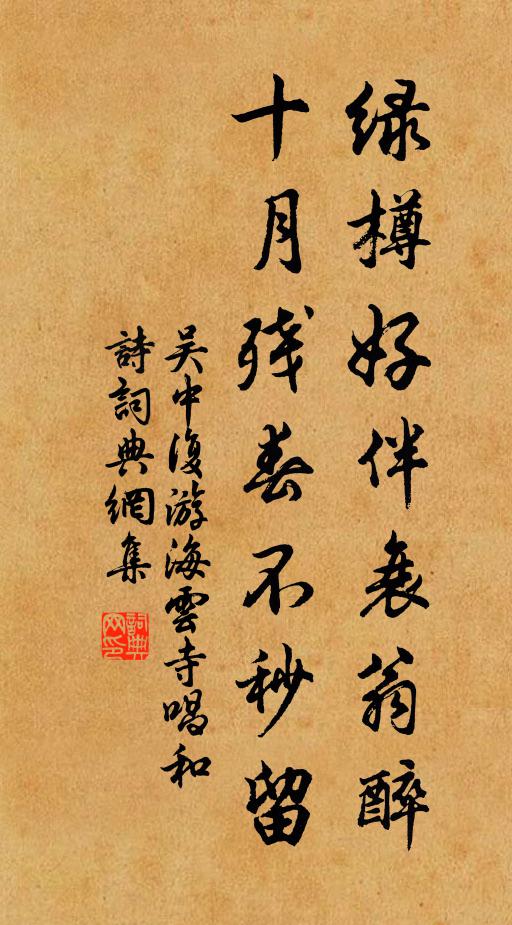 緑樽好伴衰翁醉
十月残春不秒留
吴中復游海雲寺唱和
詩詞典網集
詞典网印